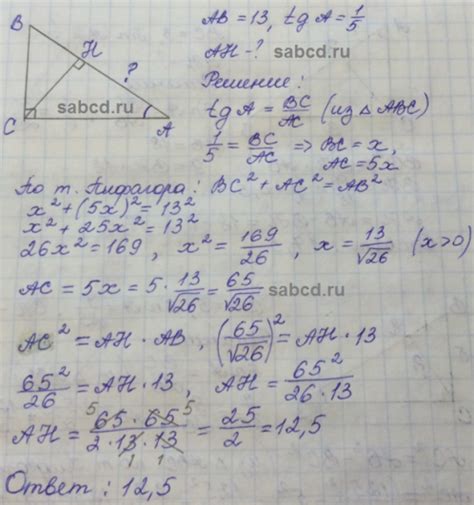 B
H
?
C
A
AB = 13, tg A = 1/5
AH - ?
sabcd.ru
sabcd.ru
Решение:
tg A = BC/AC (из △ ABC)
1/5 = BC/AC => BC = x,
AC = 5x
По т. Пифагора: BC² + AC² = AB²
x² + (5x)² = 13²
x² + 25x² = 13²
26x² = 169, x² = 169/26, x = 13/√26 (x>0)
AC = 5x = 5 · 13/√26 = 65/√26
sabcd.ru
AC² = AH · AB, (65/√26)² = AH · 13
65²/26 = AH · 13, AH = 65²/26 · 13
AH = 5 65 · 65 5/2 · 13 · 13 1 1 = 25/2 = 12,5
Ответ: 12,5